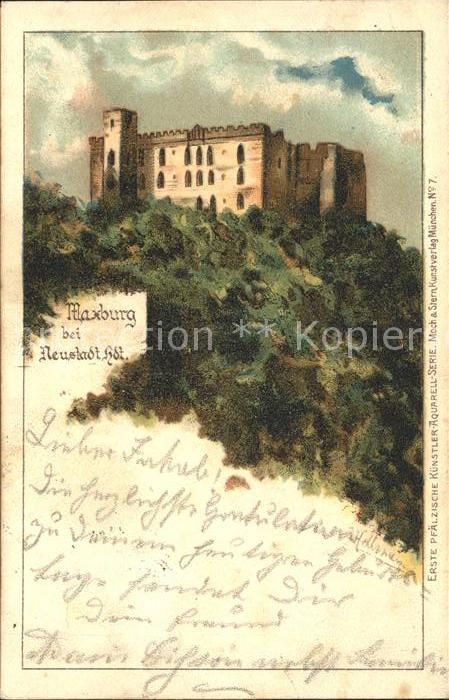 Maxburg
bei
Neustadt, Hdt.
Lieber Jakob!
Die herzlichste Gratulation
zu Deinem heutigen Geburts
tage sendet Dir
Dein Freund
nebst Familie
ERSTE PFÄLZISCHE KÜNSTLER-AQUARELL-SERIE. Moch & Stern, Kunstverlag München. No 7.
** Kopier